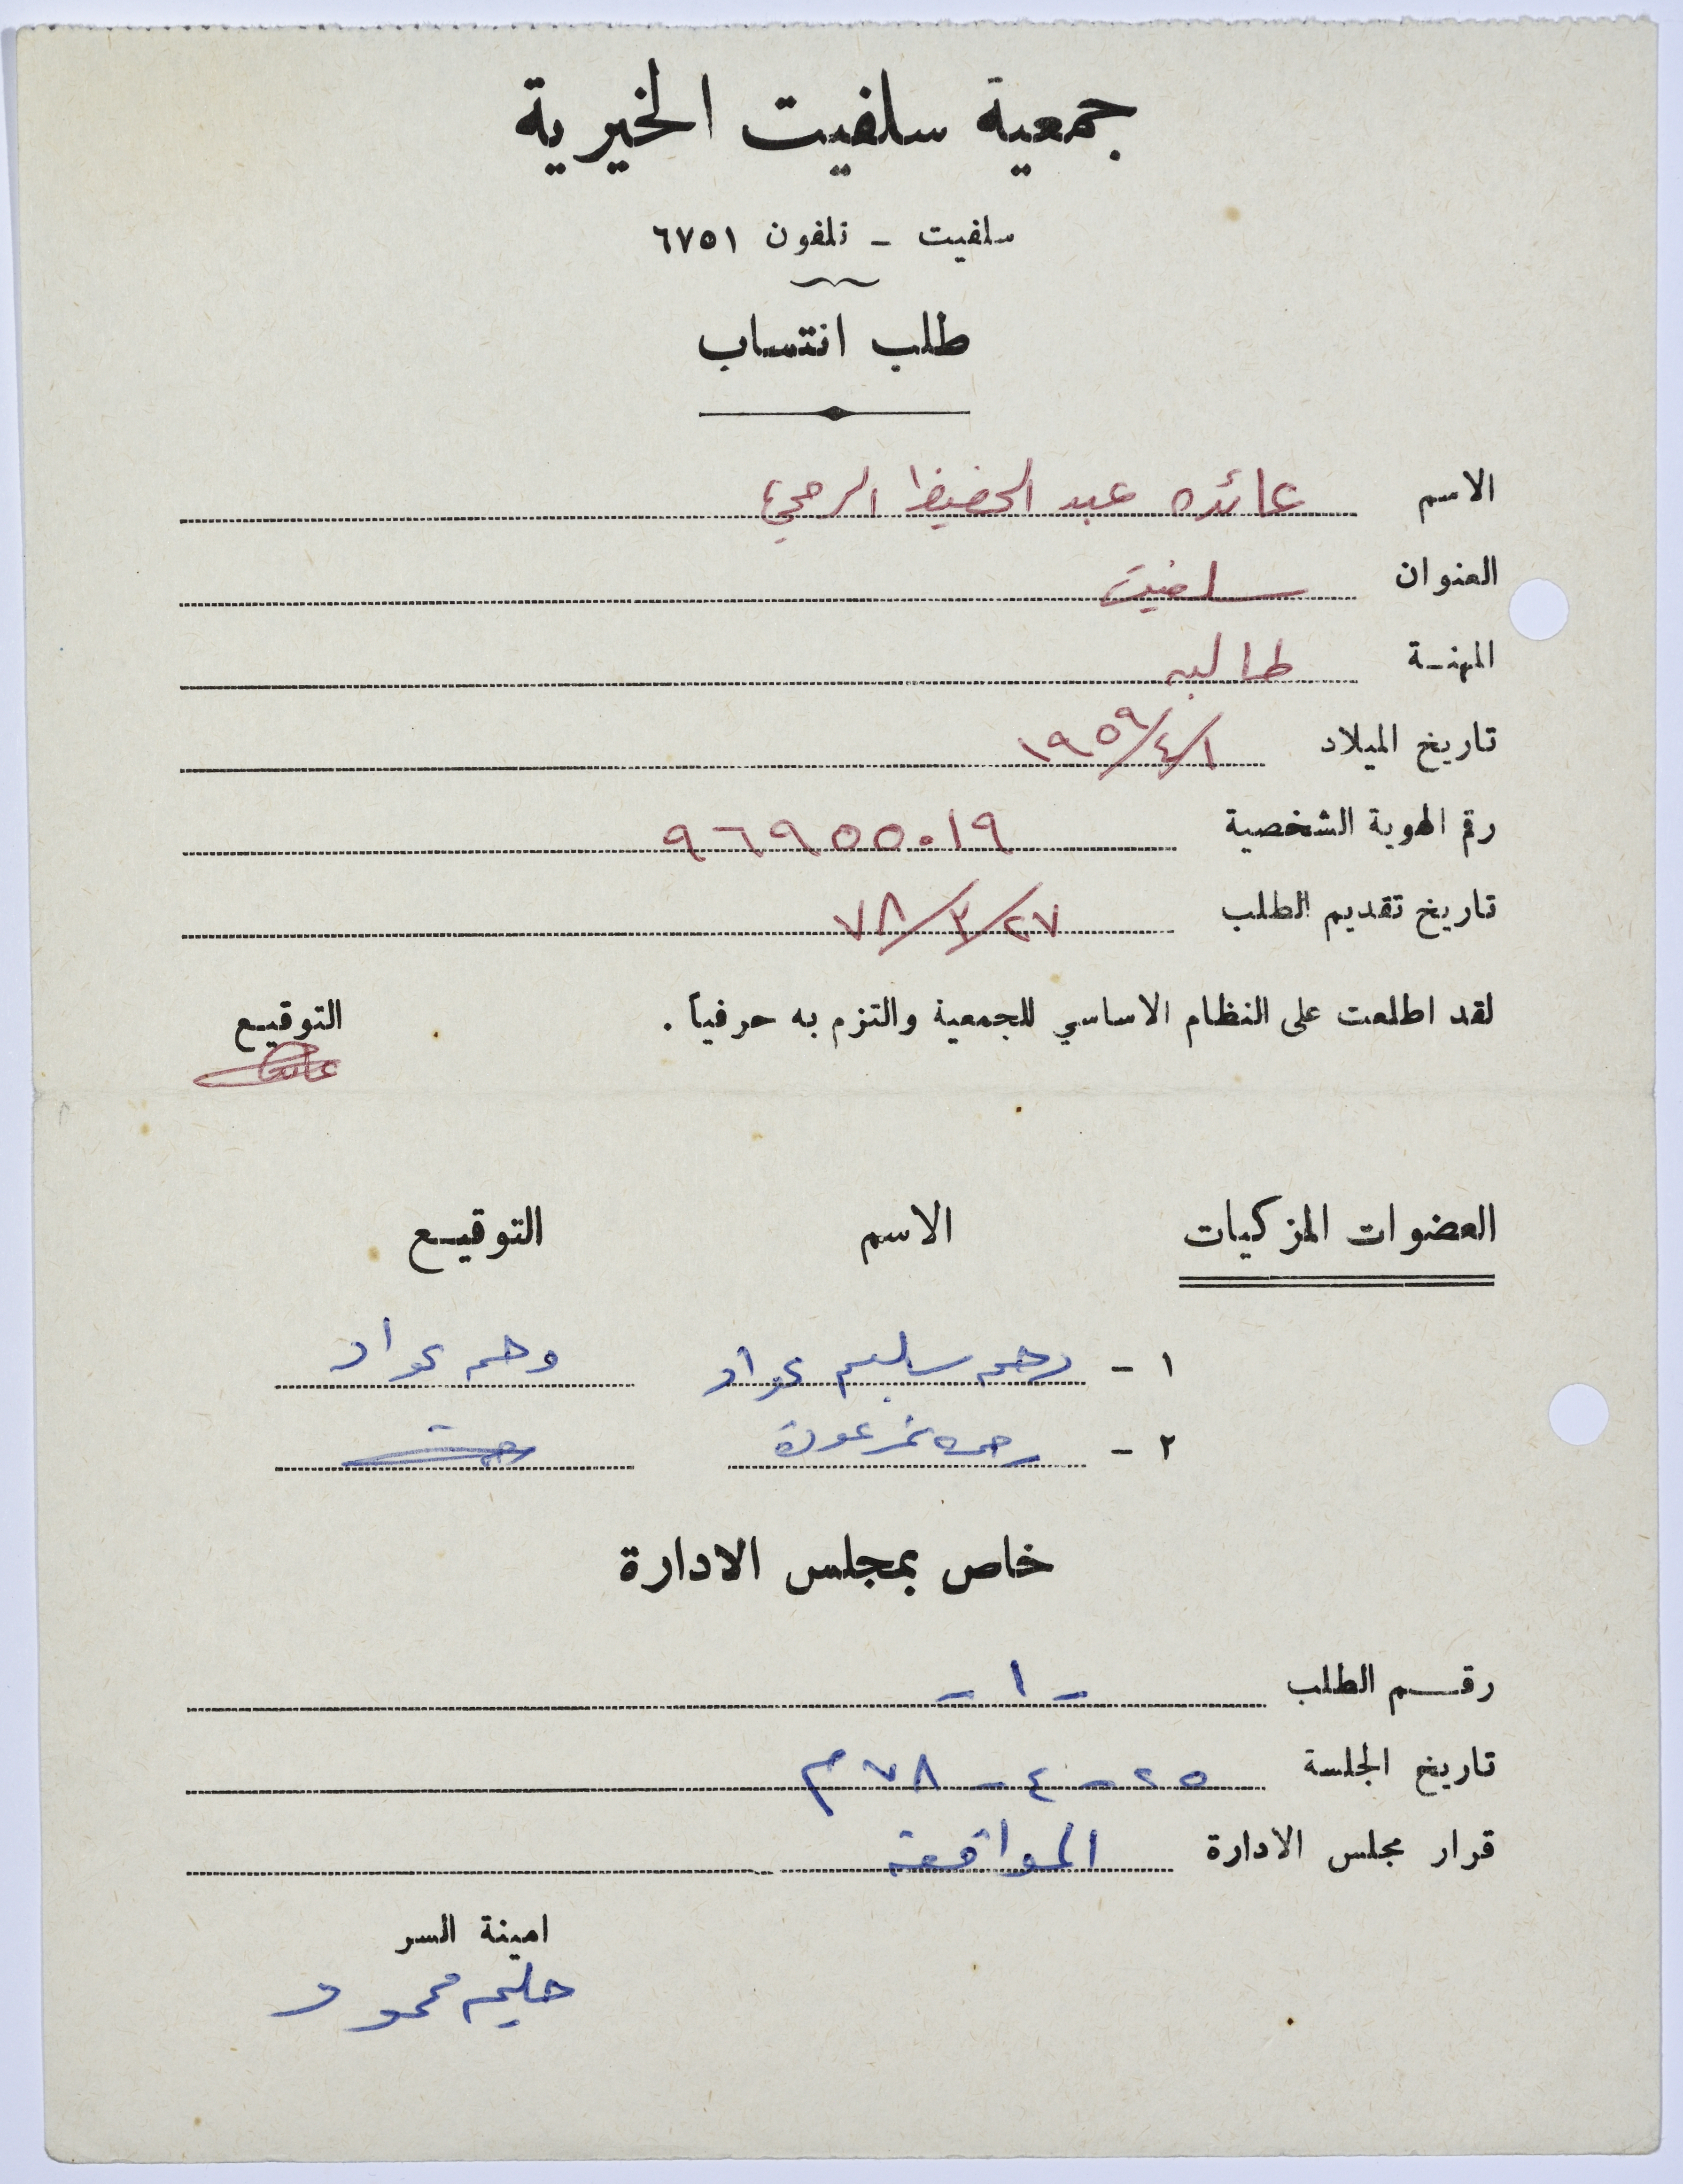 جمعية سلفيت الخيرية
سلفيت - تلفون ٦٧٥١
طلب انتساب
الاسم عائده عبد الحفيظ الرحي
العنوان سلفيت
المهنـة طالبه
تاريخ الميلاد ١/٤/١٩٥٩
رقم الهوية الشخصية ٩٦٩٥٥٠١٩
تاريخ تقديم الطلب ٢٧/٣/٧٨
لقد اطلعت على النظام الاساسي للجمعية والتزم به حرفياً . التوقيـع
العضوات المزكيات الاسم التوقيـع
١ - رحمه سليم عواد رحمه عواد
٢ - رحمه نمر عودة
خاص بمجلس الادارة
رقـم الطلب - ١ -
تاريخ الجلسة ٢٥ - ٤ - ٧٨ م
قرار مجلس الادارة الموافقة
امينة السر
حليمه محمود